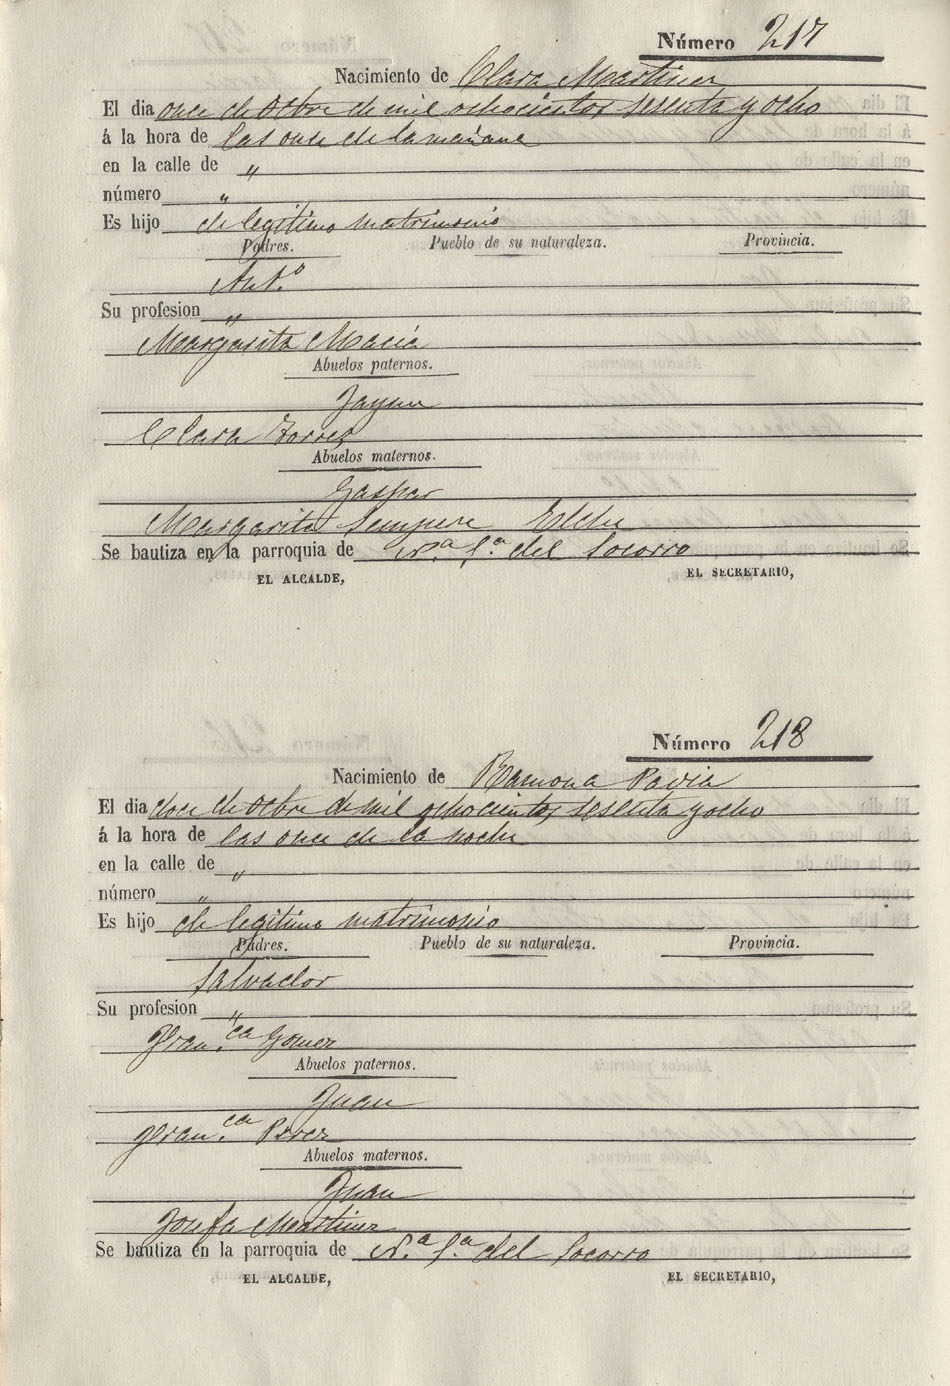 Número 217
Nacimiento de Clara Martinez
El dia once de Octbre de mil ochocientos sesenta y ocho
á la hora de las once de la mañana
en la calle de "
número "
Es hijo de legitimo matrimonio
Padres. Pueblo de su naturaleza. Provincia.
Ant.º
Su profesion "
Margarita Maciá
Abuelos paternos.
Jayme
Clara Torres
Abuelos maternos.
Gaspar
Margarita Sempere Elche
Se bautiza en la parroquia de N.ª S.ª del Socorro
EL ALCALDE, EL SECRETARIO,
Número 218
Nacimiento de Ramona Pavia
El dia doce de Octbre de mil ochocientos sesenta y ocho
á la hora de las once de la noche
en la calle de "
número "
Es hijo de legitimo matrimonio
Padres. Pueblo de su naturaleza. Provincia.
Salvador
Su profesion "
Fran.ca Gomez
Abuelos paternos.
Juan
Fran.ca Perez
Abuelos maternos.
Juan
Josefa Martinez
Se bautiza en la parroquia de N.ª S.ª del Socorro
EL ALCALDE, EL SECRETARIO,